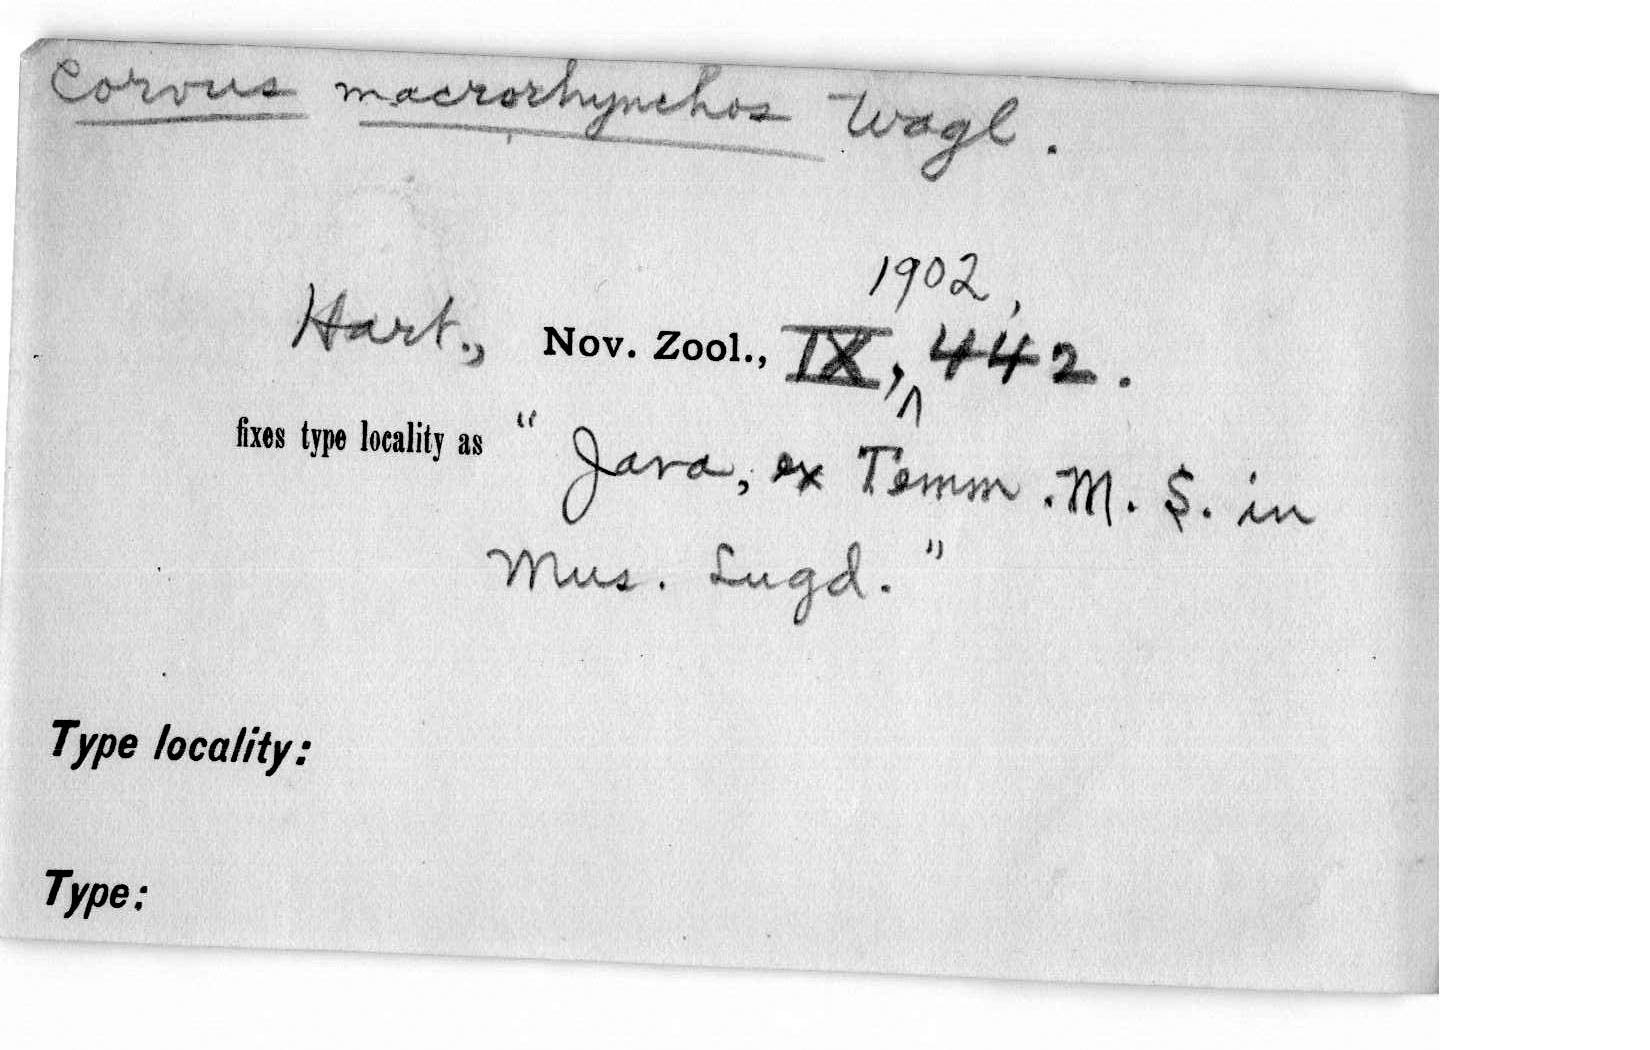 Corvus macrorhynchos Wagl.
Hart., Nov. Zool., IX, 1902, 442.
fixes type locality as "Java, ex Temm. M. S. in
Mus. Lugd."
Type locality:
Type: